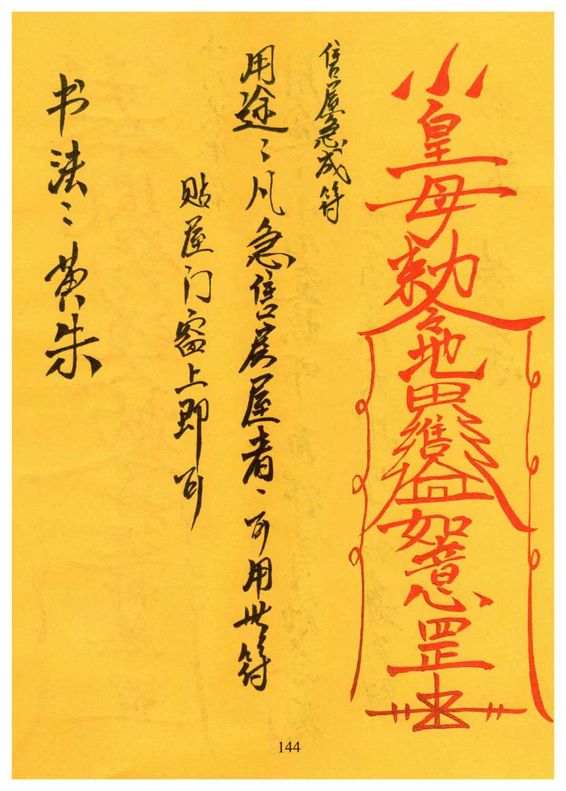 售屋急成符
用途:凡急售房屋者,可用此符
贴屋门窗上即可
书法:黄朱
皇母敕令地
如意罡
144